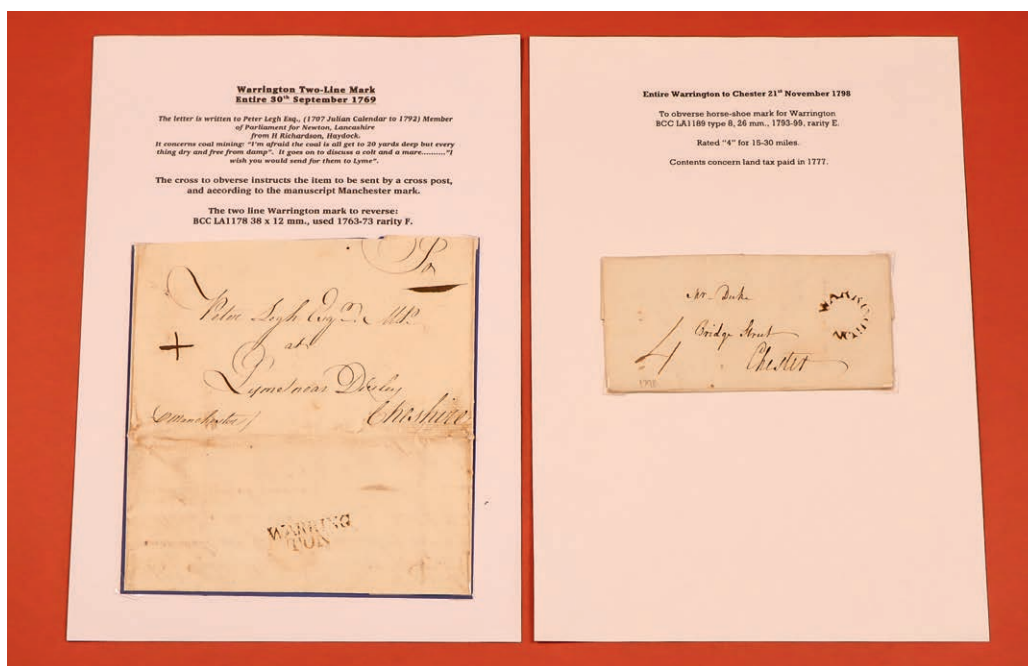 Warrington Two-Line Mark
Entire 30th September 1769
The letter is written to Peter Legh Esq., (1707 Julian Calendar to 1792) Member
of Parliament for Newton, Lancashire
from H Richardson, Haydock.
It concerns coal mining: "I'm afraid the coal is all get to 20 yards deep but every
thing dry and free from damp". It goes on to discuss a colt and a mare........."I
wish you would send for them to Lyme".
The cross to obverse instructs the item to be sent by a cross post,
and according to the manuscript Manchester mark.
The two line Warrington mark to reverse:
BCC LA1178 38 x 12 mm., used 1763-73 rarity F.
Peter Legh Esqr. MP.
+
at
Lyme near Disley
Manchester/
Cheshire
WARRING
TON
Entire Warrington to Chester 21st November 1798
To obverse horse-shoe mark for Warrington
BCC LA1189 type 8, 26 mm., 1793-99, rarity E.
Rated "4" for 15-30 miles.
Contents concern land tax paid in 1777.
Mr. Duke
WARRINGTON
Bridge Street
4
Chester
1798